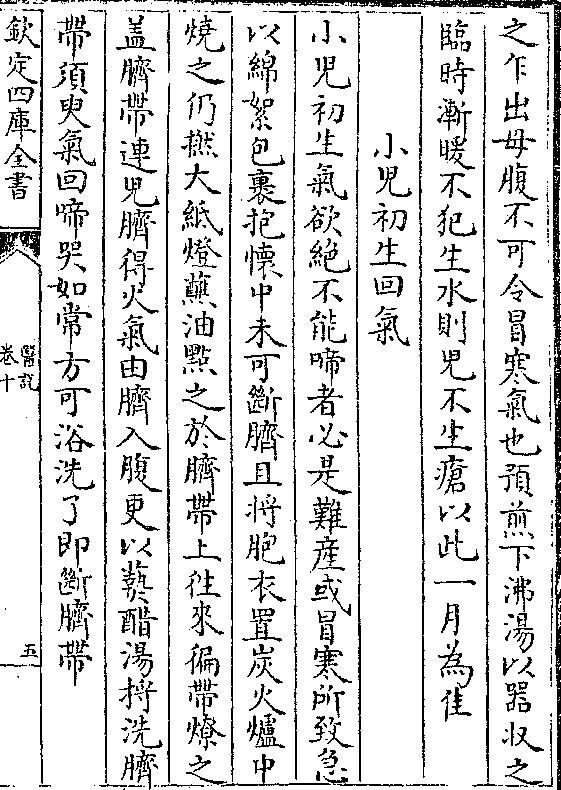 之乍出母腹不可令冒寒氣也預煎下沸湯以器収之
臨時漸暖不犯生水則児不生瘡以此一月為佳
小児初生回氣
小児初生氣欲絶不能啼者必是難産或冒寒所致急
以綿絮包裹抱懐中未可斷臍且将胞衣置炭火爐中
燒之仍撚大紙燈蘸油點之於臍帶上往來徧帶燎之
盖臍帶連児臍得火氣由臍入腹更以𤍠醋湯捋洗臍
帶須臾氣回啼哭如常方可浴洗了即斷臍帶
欽定四庫全書
醫説
卷十
五